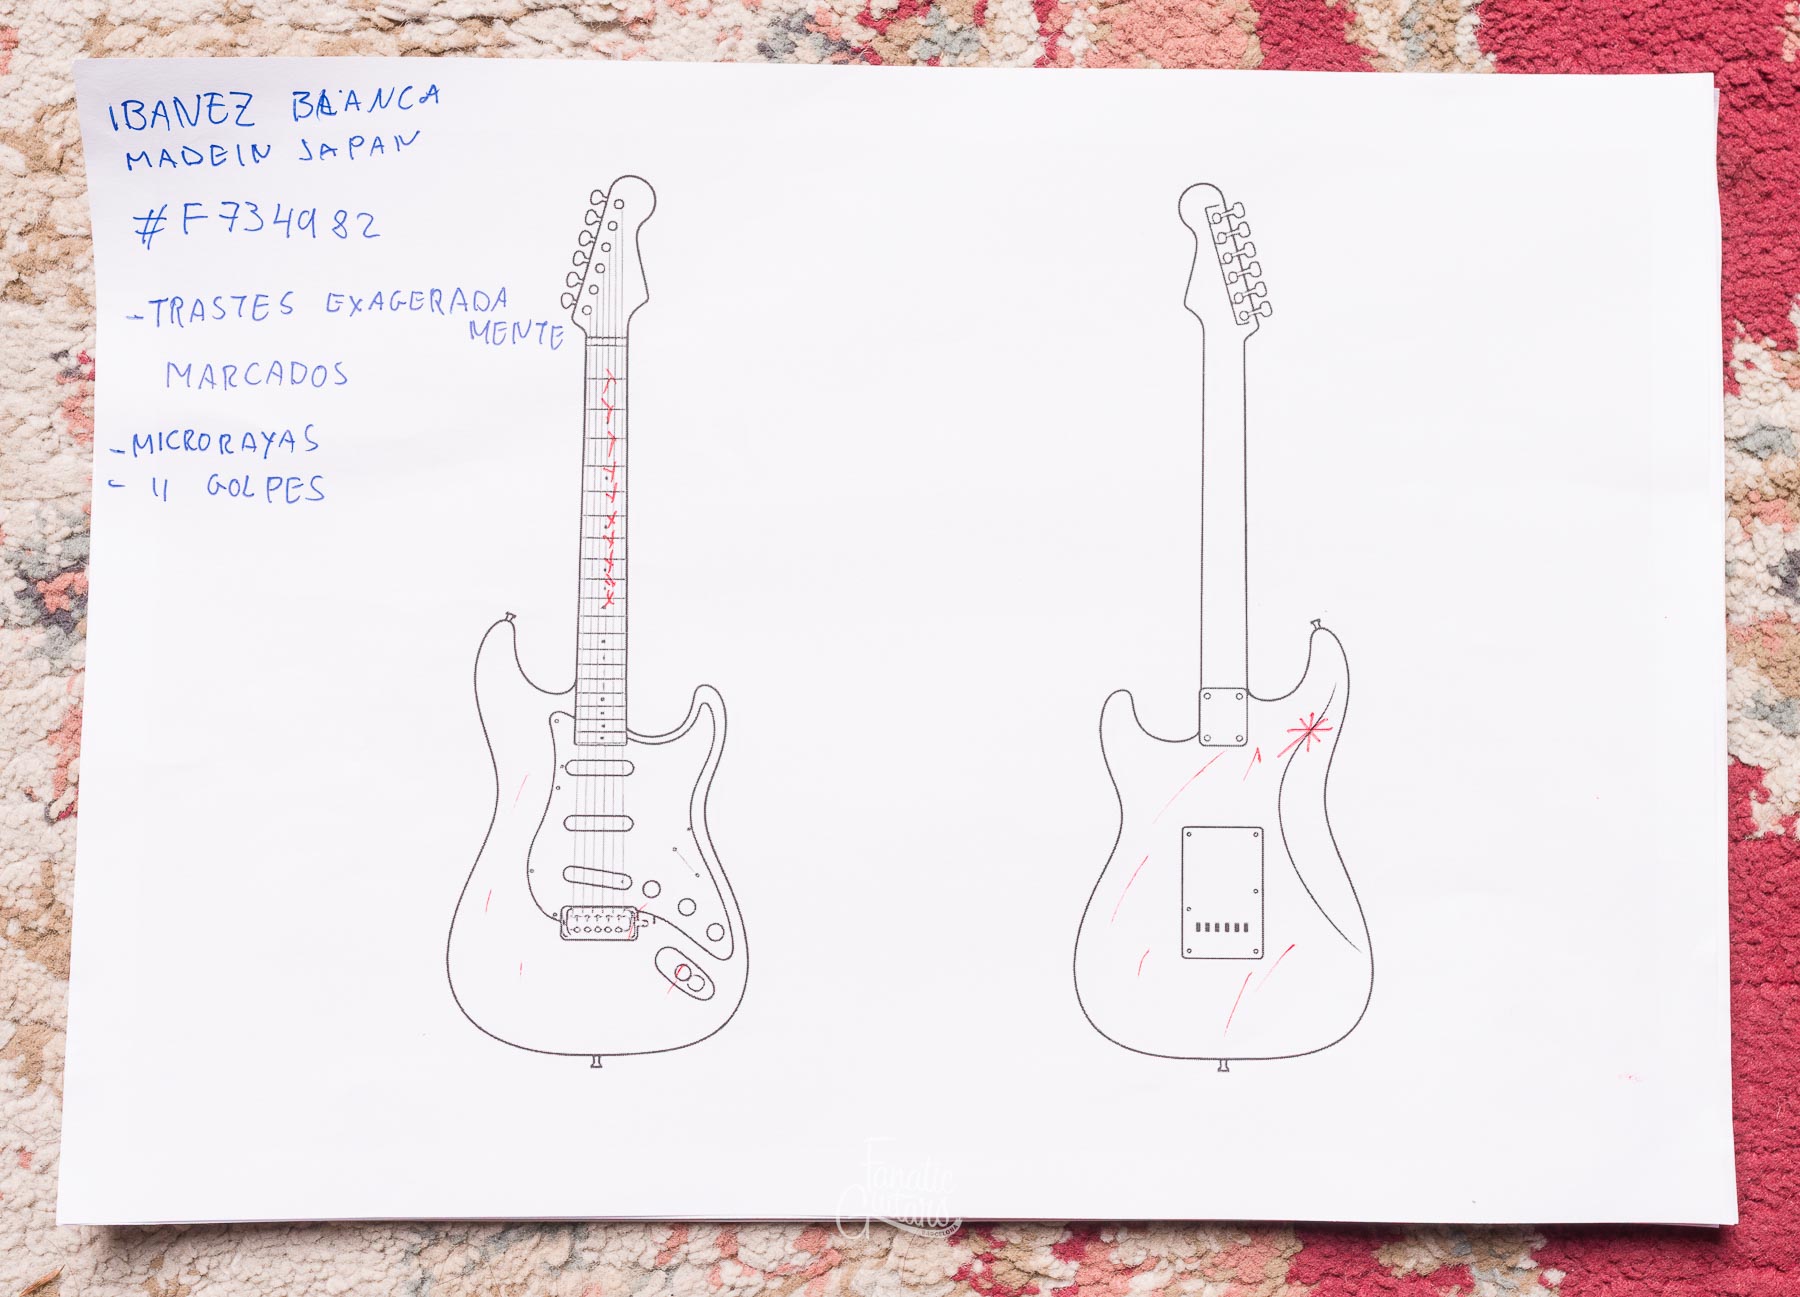 IBANEZ BLANCA
MADE IN JAPAN
#F734982
- TRASTES EXAGERADA
MENTE
MARCADOS
- MICRORAYAS
- 11 GOLPES
Fanatic
Guitars
BARCELONA